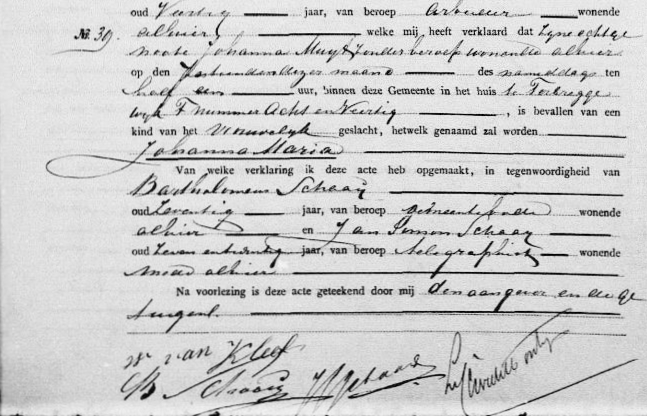 oud Veertig jaar, van beroep arbeider wonende
No. 39 alhier, welke mij heeft verklaard dat zijne echtge
noote Johanna Muyt zonder beroep wonende alhier
op den dezer maand des namiddags ten
half een uur, binnen deze Gemeente in het huis te Terbregge
wijk F nummer Acht en Veertig, is bevallen van een
kind van het Vrouwelijk geslacht, hetwelk genaamd zal worden
Johanna Maria
Van welke verklaring ik deze acte heb opgemaakt, in tegenwoordigheid van
Bartholomeus Schaaij
oud Zeventig jaar, van beroep gemeentebode wonende
alhier en Jan Simon Schaaij
oud Zeven en twintig jaar, van beroep telegraphist
mede alhier
Na voorlezing is deze acte geteekend door mij den aangever en de ge
tuigen.
W van Kleef
B Schaaij J S Schaaij